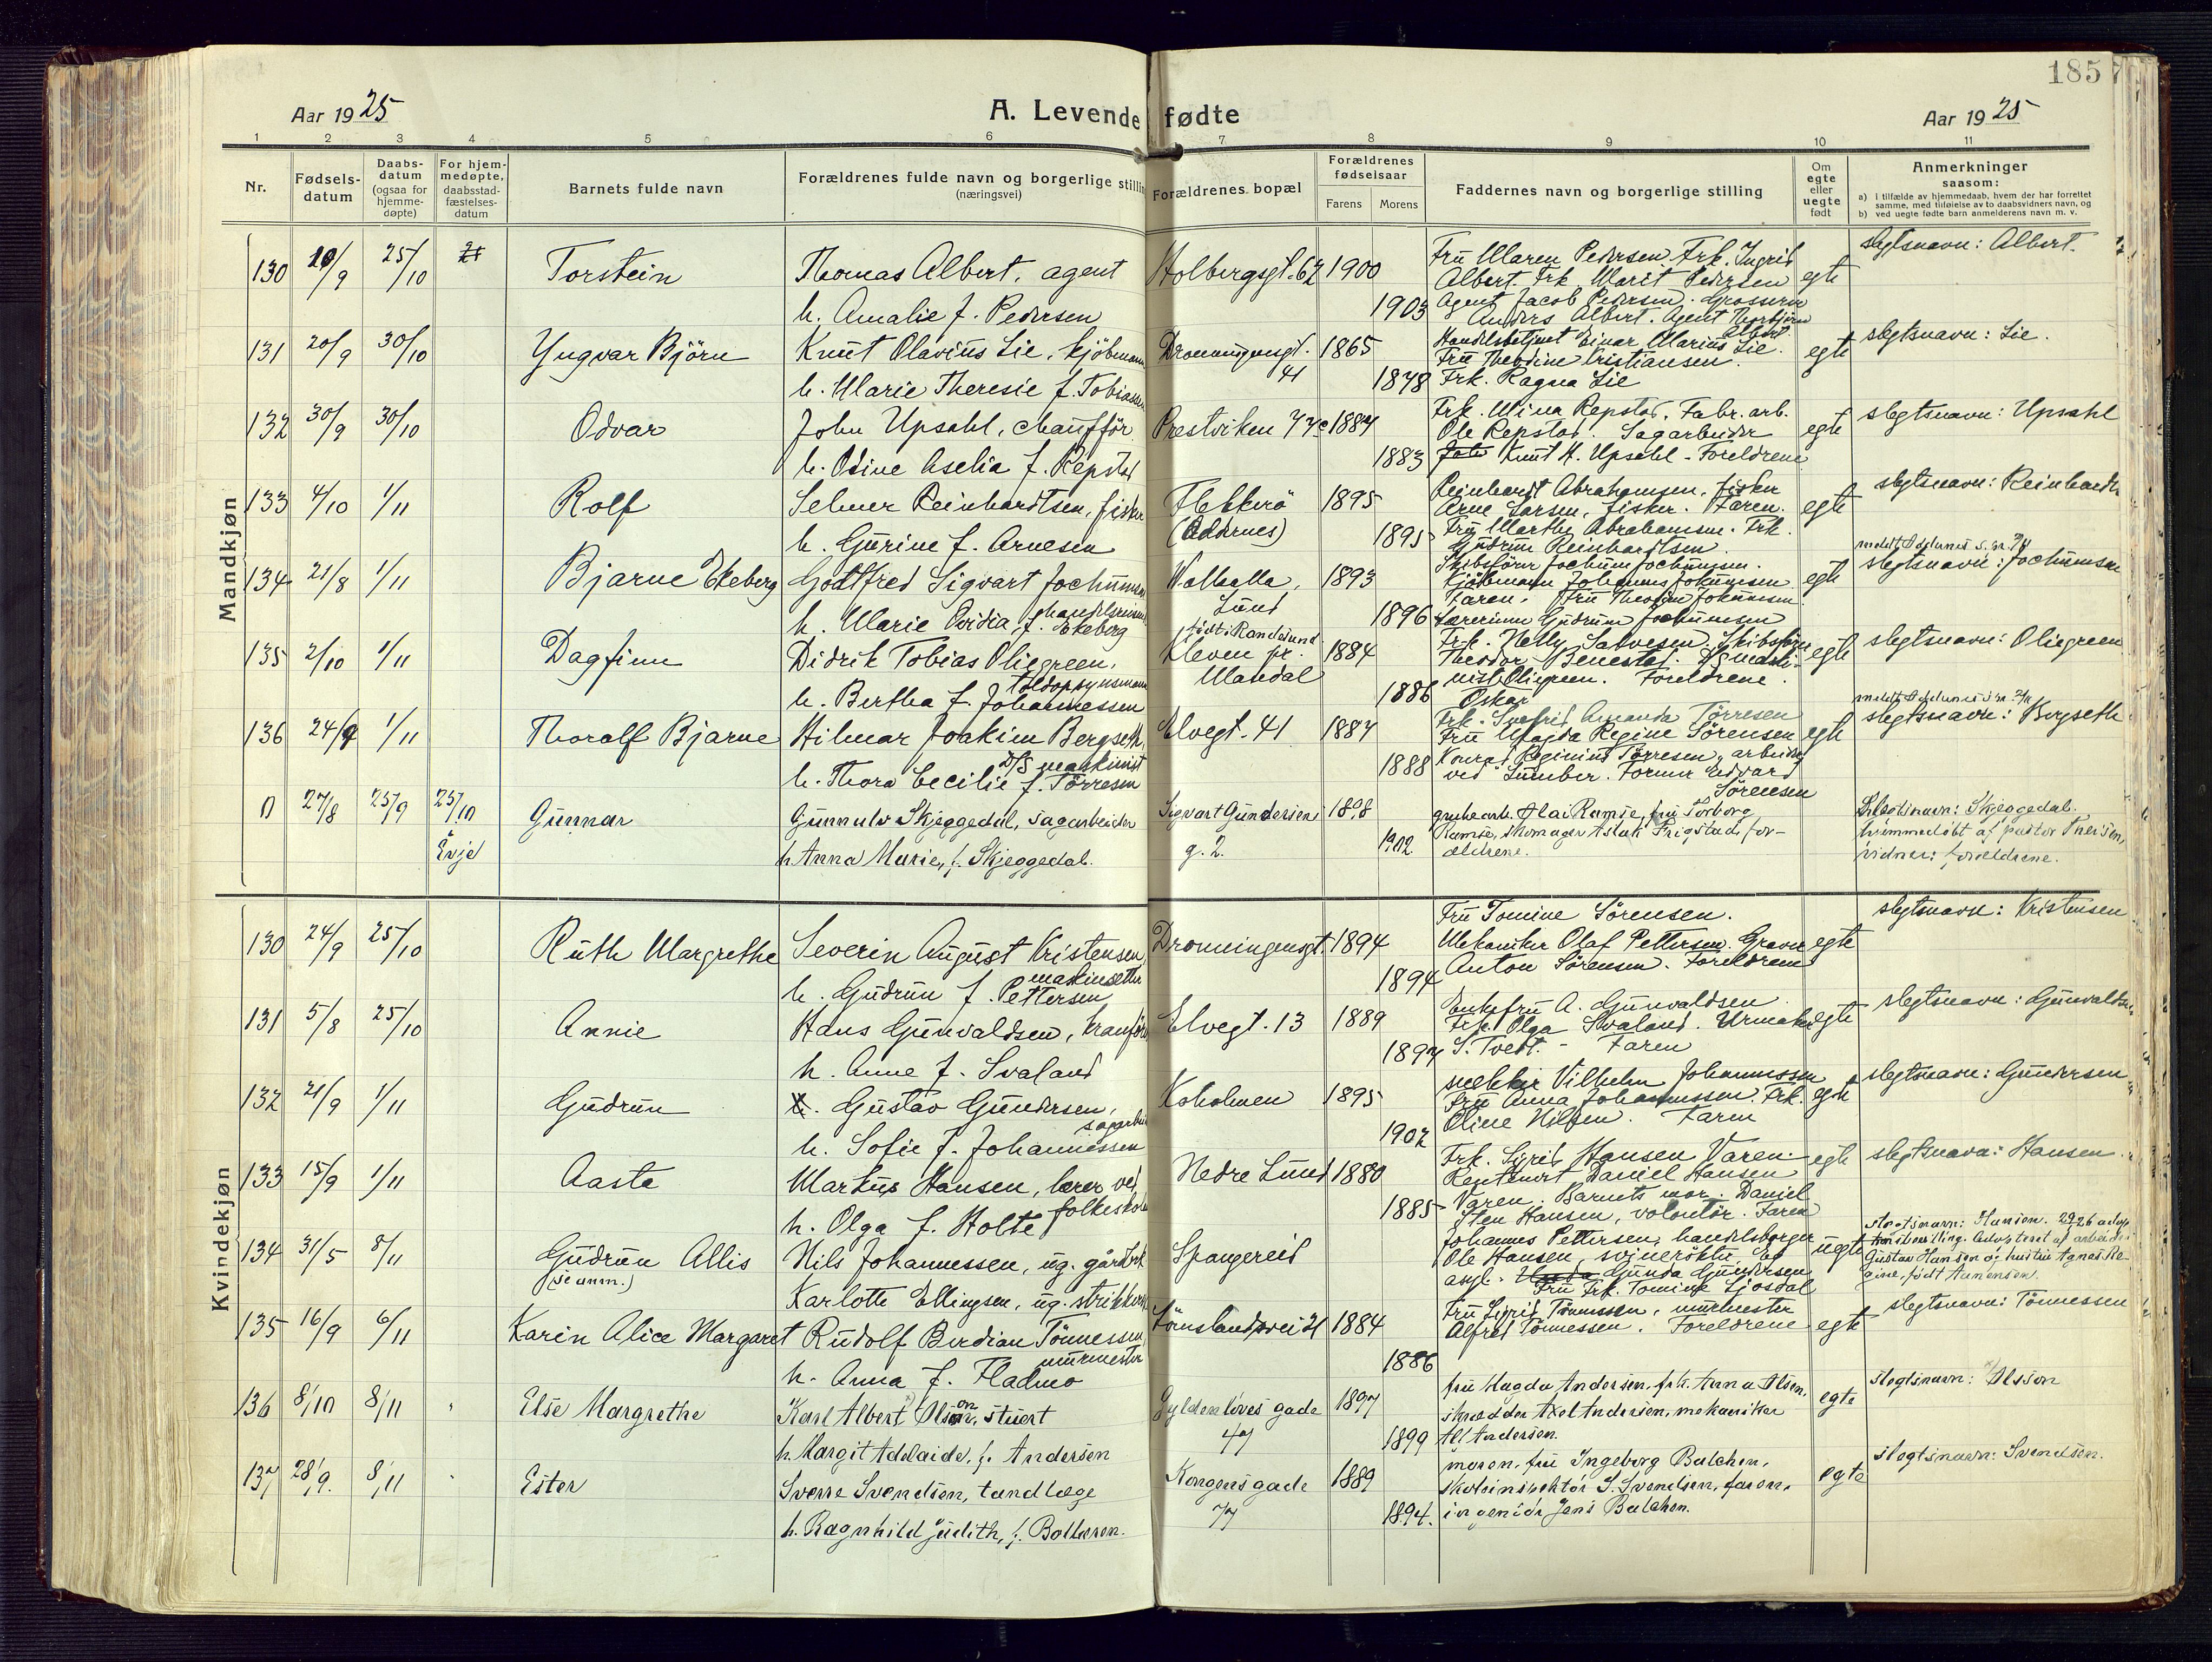 185
Aar 1925
A. Levende fødte
Aar 1925
1 2 3 4 5 6 7 8 9 10 11
Nr.
Fødselsdatum
Daabsdatum (ogsaa for hjemmedøpte)
For hjemmedøpte, daabsstadfæstelsesdatum
Barnets fulde navn
Forældrenes fulde navn og borgerlige stilling (næringsvei)
Forældrenes bopæl
Forældrenes fødselsaar
Farens Morens
Faddernes navn og borgerlige stilling
Om egte eller uegte født
Anmerkninger
saasom:
a) i tilfælde av hjemmedaab, hvem der har forrettet samme, med tilføielse av to daabsvidners navn, og
b) ved uegte fødte barn anmelderens navn m. v.
Mandkjøn
130 10/9 25/10 Torstein
Thomas Albert, agent
h. Amalie f. Pedersen
Holbergsgt. 62 1900
1903
Fru Maren Pedersen. Frk. Ingrid
Albert. Frk. Marit Pedersen
Agent Jacob Pedersen. Grosserer
Anders Albert. Agent Thorbjörn
Albert
egte
slegtsnavn: Albert.
131 20/9 30/10 Yngvar Björn
Knut Olavius Lie, kjöbmann
h. Marie Theresie f. Tobiassen
Dronningensgt. 41 1865
1878
Handelsbetjent Einar Marius Lie.
Fru Theodine Cristiansen.
Frk. Ragna Lie
egte
slegtsnavn: Lie.
132 30/9 30/10 Odvar
John Upsahl, chaufför
h. Odine Aselia f. Repstad
Prestviken 1884
1883
Frk. Mina Repstad. Fabr. arb.
Ole Repstad. Sagarbeider
Knut H. Upsahl - Foreldrene
egte
slegtsnavn: Upsahl
133 4/10 1/11 Rolf
Selmer Reinhardtsen, fisker
h. Gurine f. Arnesen
Flekkerö
(Oddernes)
1895
1895
Reinhardt Abrahamsen, fisker
Arne Larsen, fisker. Faren.
Fru Marthe Abrahamsen. Frk.
Gudrun Reinhardtsen.
egte
slegtsnavn: Reinhardts
134 21/8 1/11 Bjarne Ekeberg
Gottfred Sigvart Jochumsen
handelsreisende
h. Marie Ovidia f. Ekeberg
Valhalla,
Lund
1893
1896
Skibsförer Jochum Jochumsen.
Kjöbmann Johannes Jokumsen
Faren. Fru Theodine Jokumsen.
Lærerinne Gudrun Jochumsen
egte
slegtsnavn: Jochumsen
135 2/10 1/11 Dagfinn
Didrik Tobias Oliegreen,
toldopsynsmann
h. Bertha f. Johannessen
født: Randesund
Kleven pr.
Mandal
1884
1886
Frk. Nelly Salvesen, Skibsförer
Theodor Benestad.
Oliegreen. Foreldrene.
Oskar
egte
slegtsnavn: Oliegreen
136 24/9 1/11 Thoralf Bjarne
Hilmar Joakim Bergseth,
D/S maskinist
h. Thora Cecilie f. Törresen
Elvegt. 41 1887
1888
Frk. Amanda Törresen
Fru Magda Regine Sörensen
Konrad Reginius Törresen, arbeider
ved Lumber. Former Edvard
Sörensen
egte
slegtsnavn: Bergseth
n 27/8 25/9 25/10
Evje
Gunnar
Gunnulv Skjeggedal, sagarbeider
h. Anna Marie, f. Skjeggedal.
Sigvart Gundersens
g. 2.
1898
1902
grubearb. Olai Ramse, fru Torborg
Ramse, skomager Aslak Frigstad, for-
ældrene.
Slegtsnavn: Skjeggedal.
hjemmedöbt af pastor Thersen,
vidner: forældrene.
Kvindekjøn
130 24/9 25/10 Ruth Margrethe
Severin August Kristensen,
maskinsetter
h. Gudrun f. Pettersen
Dronningensgt. 1894
1894
Fru Tomine Sörensen.
Mekaniker Olaf Pettersen. Gravør
Anton Sörensen. Foreldrene
egte
slegtsnavn: Kristensen
131 5/8 25/10 Annie
Hans Gunvaldsen, kranförer
h. Anne f. Svaland
Elvegt. 13 1889
1897
Enkefru A. Gunvaldsen.
Frk. Olga Svaland. Urmaker
S. Tvedt. - Faren
egte
slegtsnavn: Gunvaldsen
132 21/9 1/11 Gudrun
Gustav Gundersen,
sagarbeider
h. Sofie f. Johannessen
Koholmen 1895
1902
snekker Vilhelm Johannessen
Fru Anna Johannessen. Frk.
Oline Nilsen. Faren
egte
slegtsnavn: Gundersen
133 15/9 1/11 Aasta
Markus Hansen, lærer ved
folkeskolen
h. Olga f. Holte
Nedre Lund 1880
1885
Frk. Sigrid Hansen Varen.
Daniel Hansen
Varen. Barnets mor. Daniel
Sten Hansen, volontör. Faren
egte
slegtsnavn: Hansen.
134 31/5 8/11 Gudrun Allis
(se anm.)
Nils Johannessen, ug. gårdbrk
Karlotte Ellingsen, ug. strikkerske
Spangereid
Johannes Pettersen, handelsborger
Ole Hansen,
Gunda Gundersen
Fru Frk. Tomine Ljosdal
uegte
slegtsnavn: Hansen. 29/9 26 adop-
tionsbevilling. Adopteret af arbeider
Gustav Hansen og hustru Agnes Re-
gine, født Aanensen.
135 16/9 6/11 Karin Alice Margaret
Rudolf Berdian Tönnessen,
murmester
h. Anna f. Fladmo
Tömslandsvei 21 1884
1886
Fru Sigrid Tönnessen, murmester
Alfred Tönnessen. Foreldrene
egte
slegtsnavn: Tönnessen
136 8/10 8/11 Else Margrethe
Karl Albert Olsson, stuert
h. Margit Adelaide, f. Andersen
Gyldenløves gade
47
1897
1899
fru Magda Andersen, frk. Anna Olsen,
skrædder Axel Andersen, mekaniker
Alf Andersen.
egte
slegtsnavn: Olsson
137 28/9. 8/11 Ester
Sverre Svendsen, tandlæge
h. Ragnhild Judith, f. Boltersen.
Kongensgade
77
1889
1894.
moren, fru Ingeborg Balchen,
skoleinspektør S. Svendsen, faren,
ingeniør Jens Balchen.
egte
slegtsnavn: Svendsen.